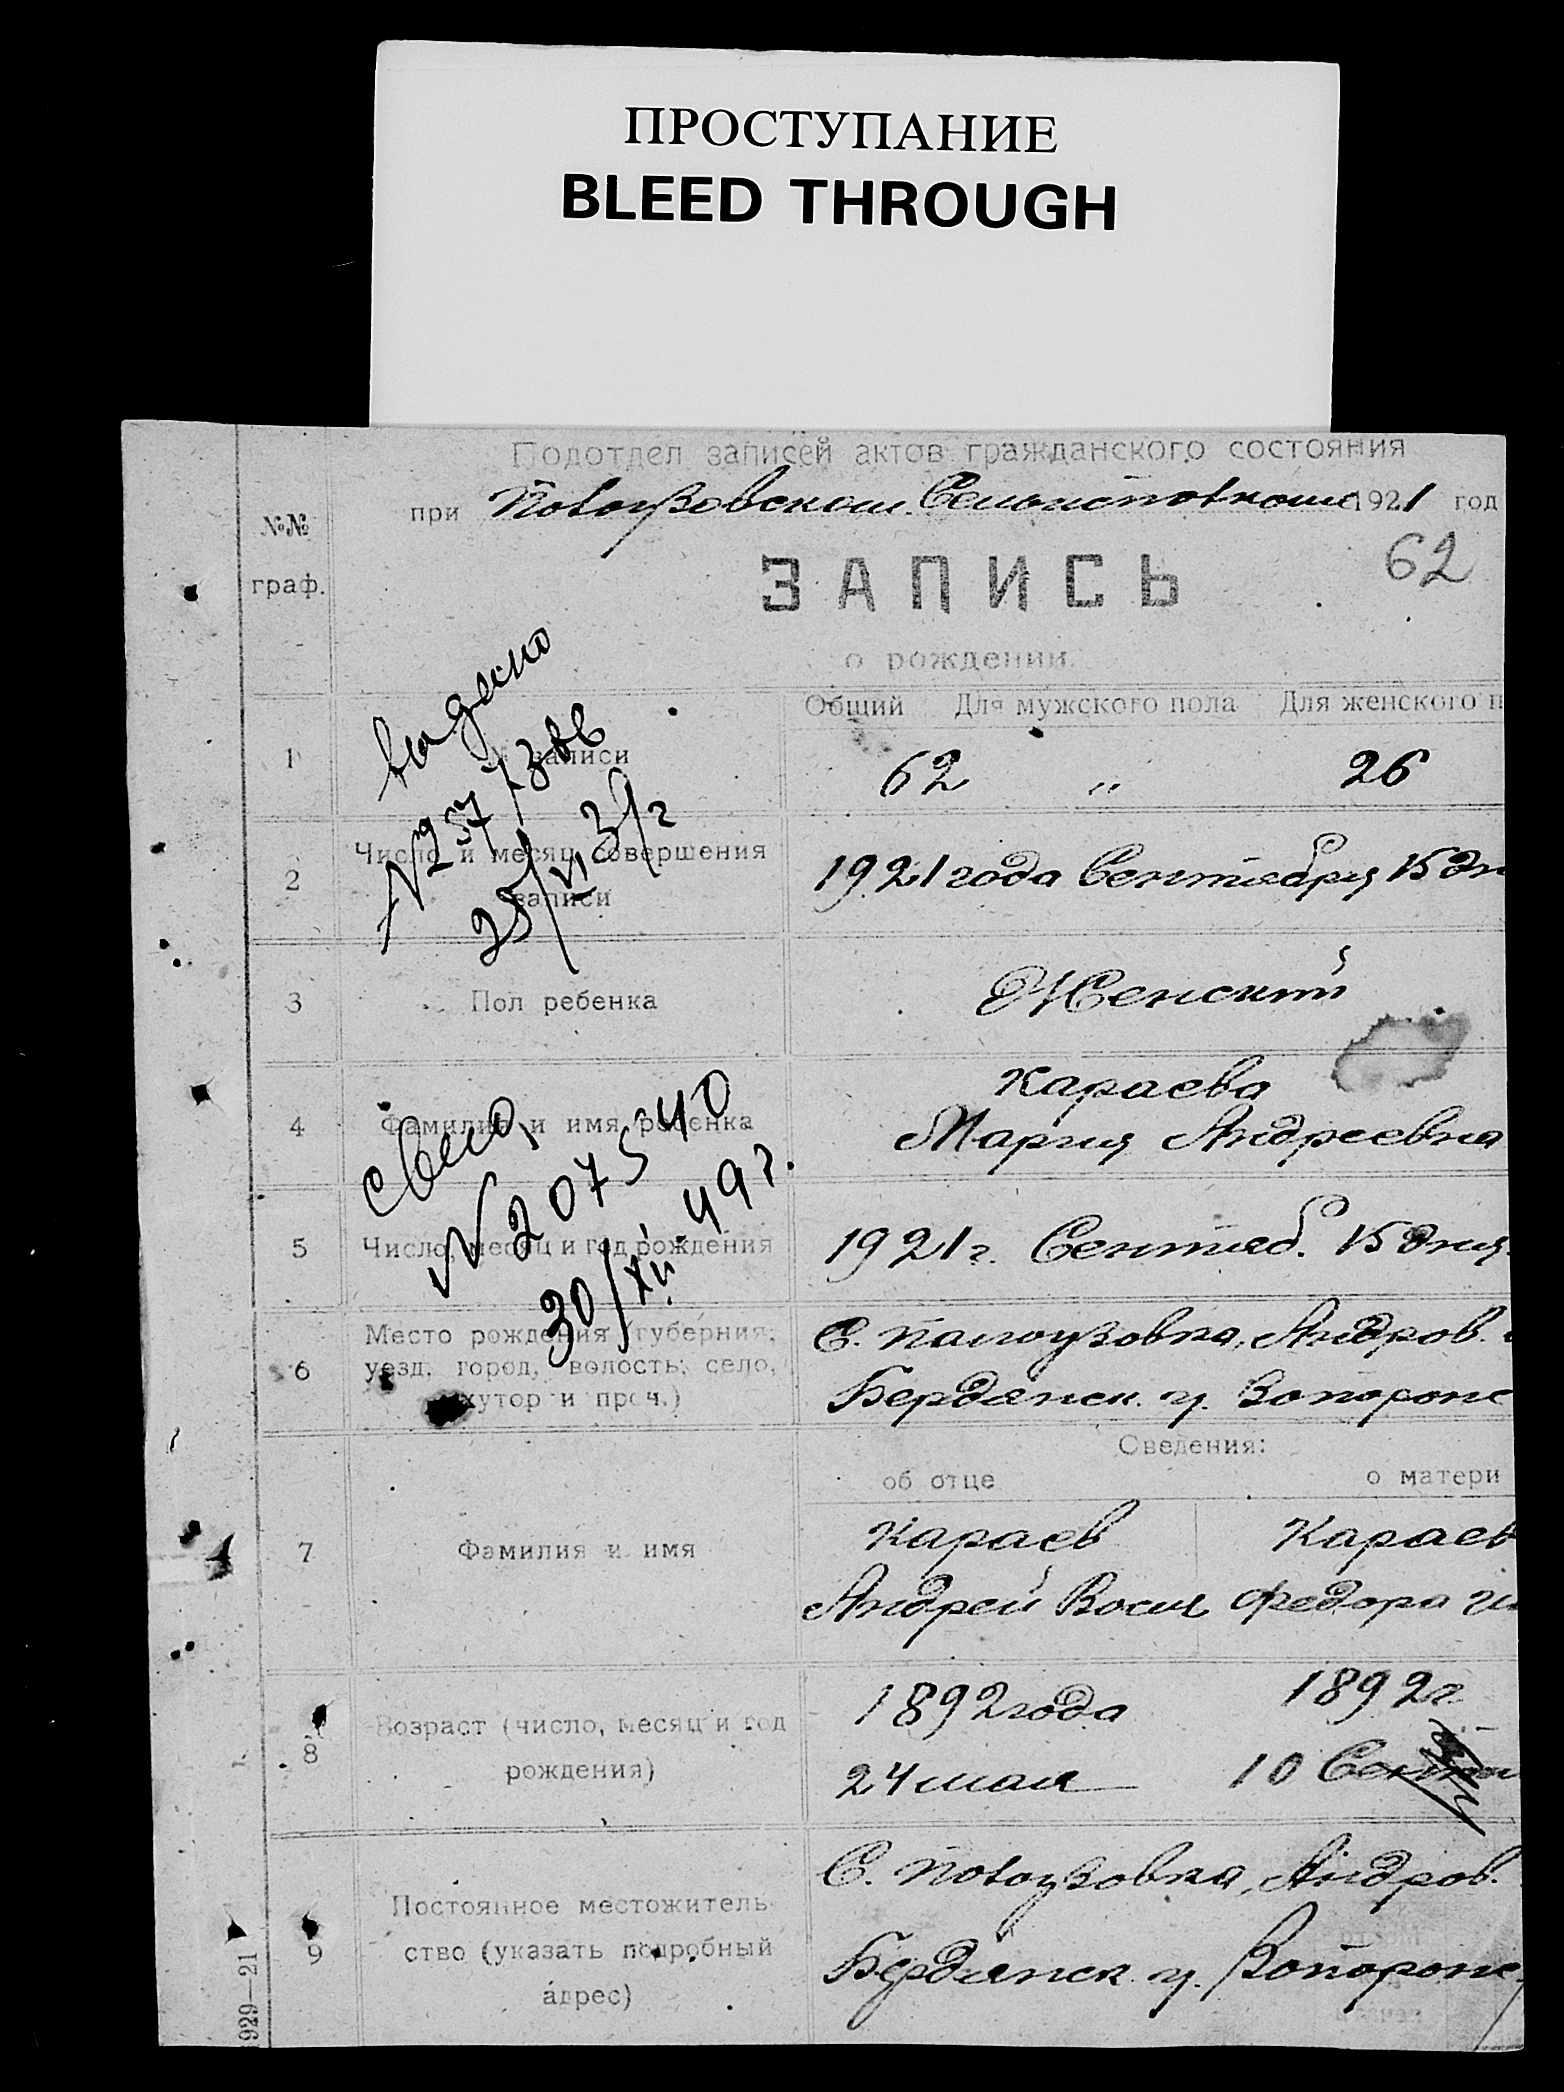 ПРОСТУПАНИЕ
BLEED THROUGH
Подотдел записей актов гражданского состояния
при 1921 год
№№
граф.
62
ЗАПИСЬ
о рождении.
Общий Для мужского пола Для женского п
1 № записи 62 " 26
выдано
25/VI 39г
2 Число и месяц совершения
записи
1921 года Сентября 15 дн
3 Пол ребенка Женский
4 Фамилия и имя ребенка
Караева
Мария Андреевна
№ 207540
30/XII. 49г.
5 Число, месяц и год рождения 1921г. Сентяб. 15 дня.
6 Место рождения (губерния,
уезд, город, волость, село,
хутор и проч.)
Андров.
Бердянск. у.
Сведения:
об отце о матери
7 Фамилия и имя
Караев Караев
Андрей Васил Федора
8 Возраст (число, месяц и год
рождения)
1892 года 1892г
24 мая 10
9 Постоянное местожитель-
ство (указать подробный
адрес)
Андров.
Бердянск у.
929—21